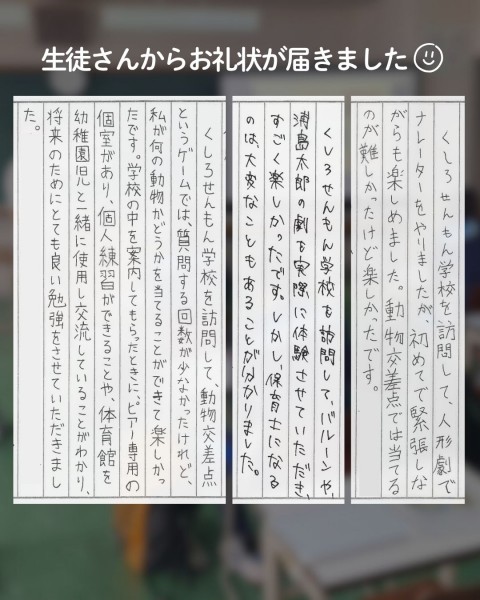 生徒さんからお礼状が届きました
くしろせんもん学校を訪問して、人形劇で
ナレーターをやりましたが、初めてで緊張しな
がらも楽しめました。動物交差点では当てる
のが難しかったけど楽しかったです。
くしろせんもん学校を訪問して、バルーンや、
浦島太郎の劇を実際に体験させていただき、
すごく楽しかったです。しかし、保育士になる
のは、大変なこともあることが分かりました。
くしろせんもん学校を訪問して、動物交差点
というゲームでは、質問する回数が少なかったけれど、
私が何の動物かどうかを当てることができて楽しかっ
たです。学校の中を案内してもらったときに、ピアノ専用の
個室があり、個人練習ができることや、体育館を
幼稚園児と一緒に使用し交流していることがわかり、
将来のためにとても良い勉強をさせていただきまし
た。